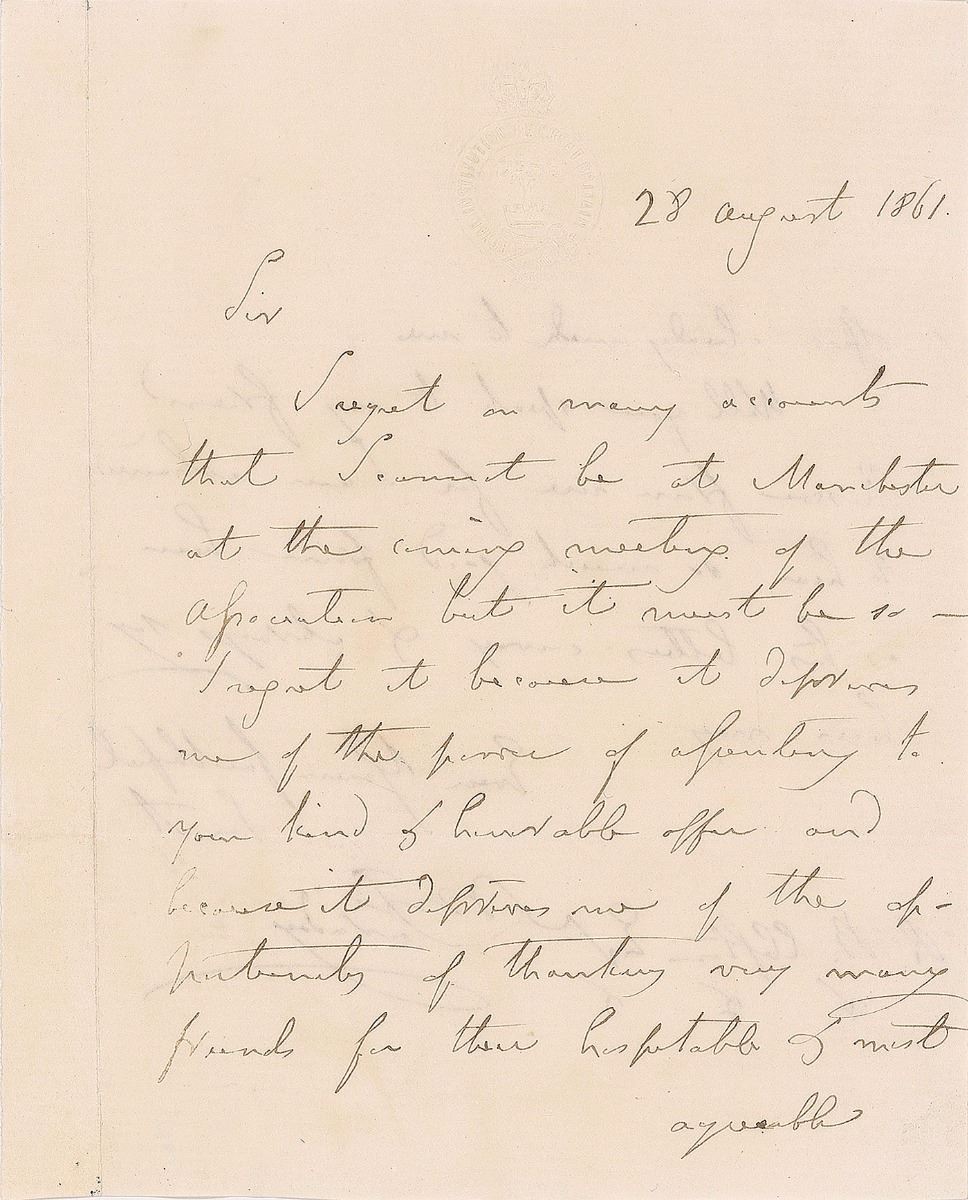 28 august 1861.
Sir
I regret on many accounts
that I cannot be at Manchester
at the coming meeting of the
Association but it must be so —
I regret it because it deprives
me of the power of assenting to
your kind & honorable offer and
because it deprives me of the op-
portunity of thanking very many
friends for their hospitable & most
agreeable